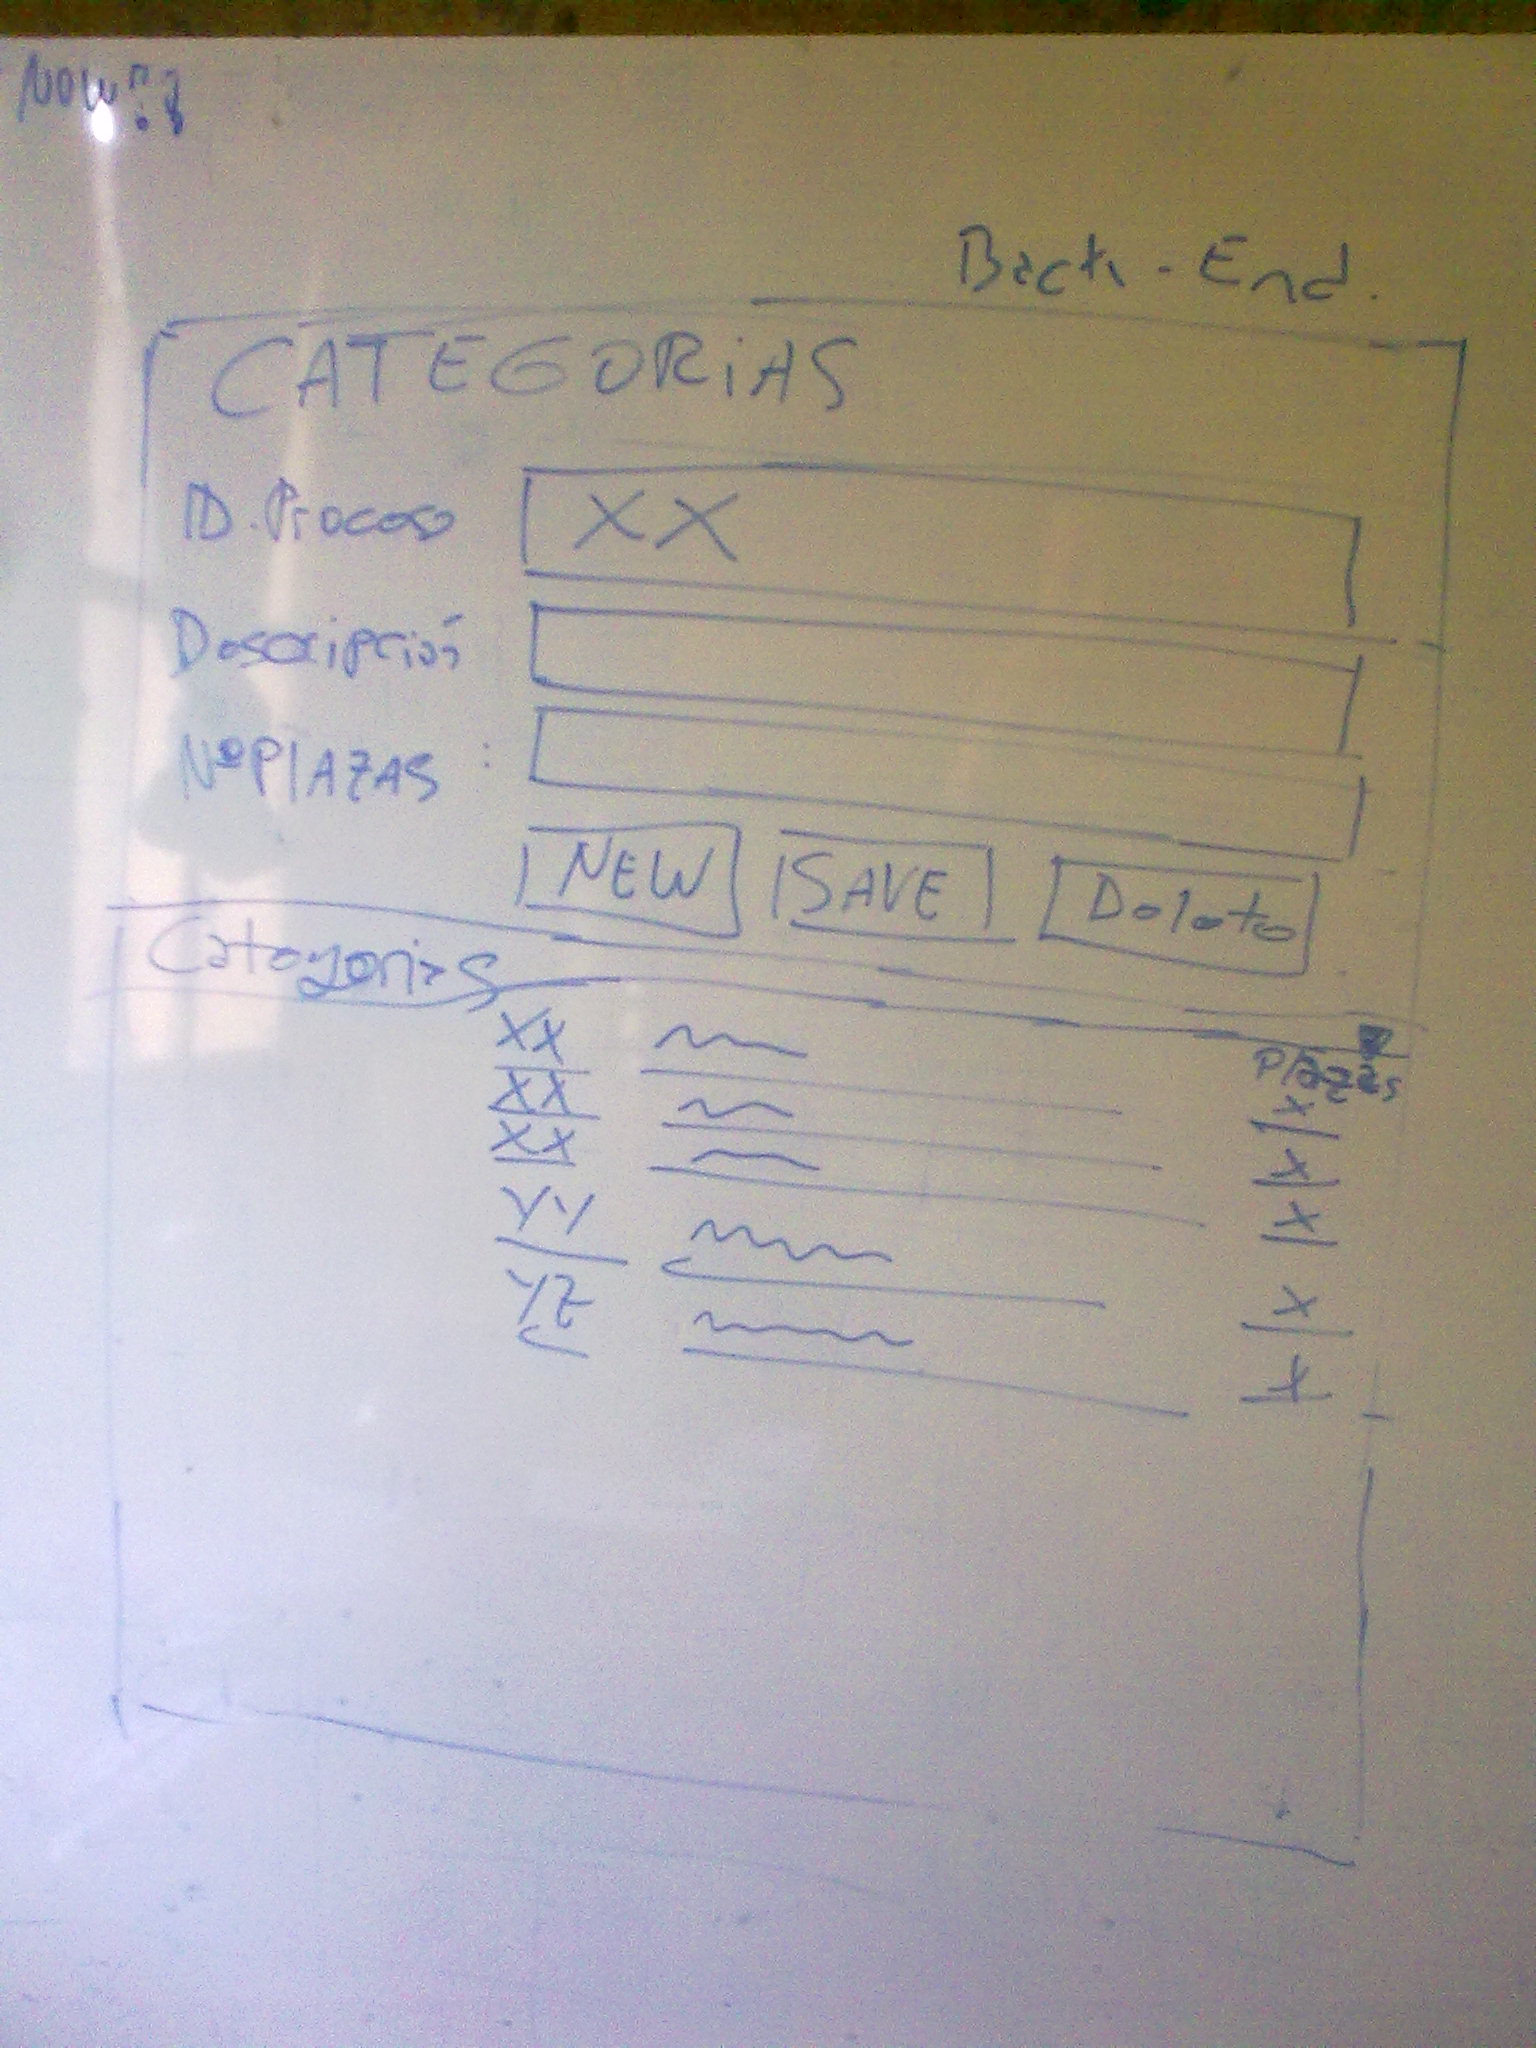 Back-End.
CATEGORIAS
ID.Proceso XX
Descripción
NºPLAZAS :
NEW SAVE Delete
Categorias
Plazas
XX X
XX X
XX X
YY X
YZ X